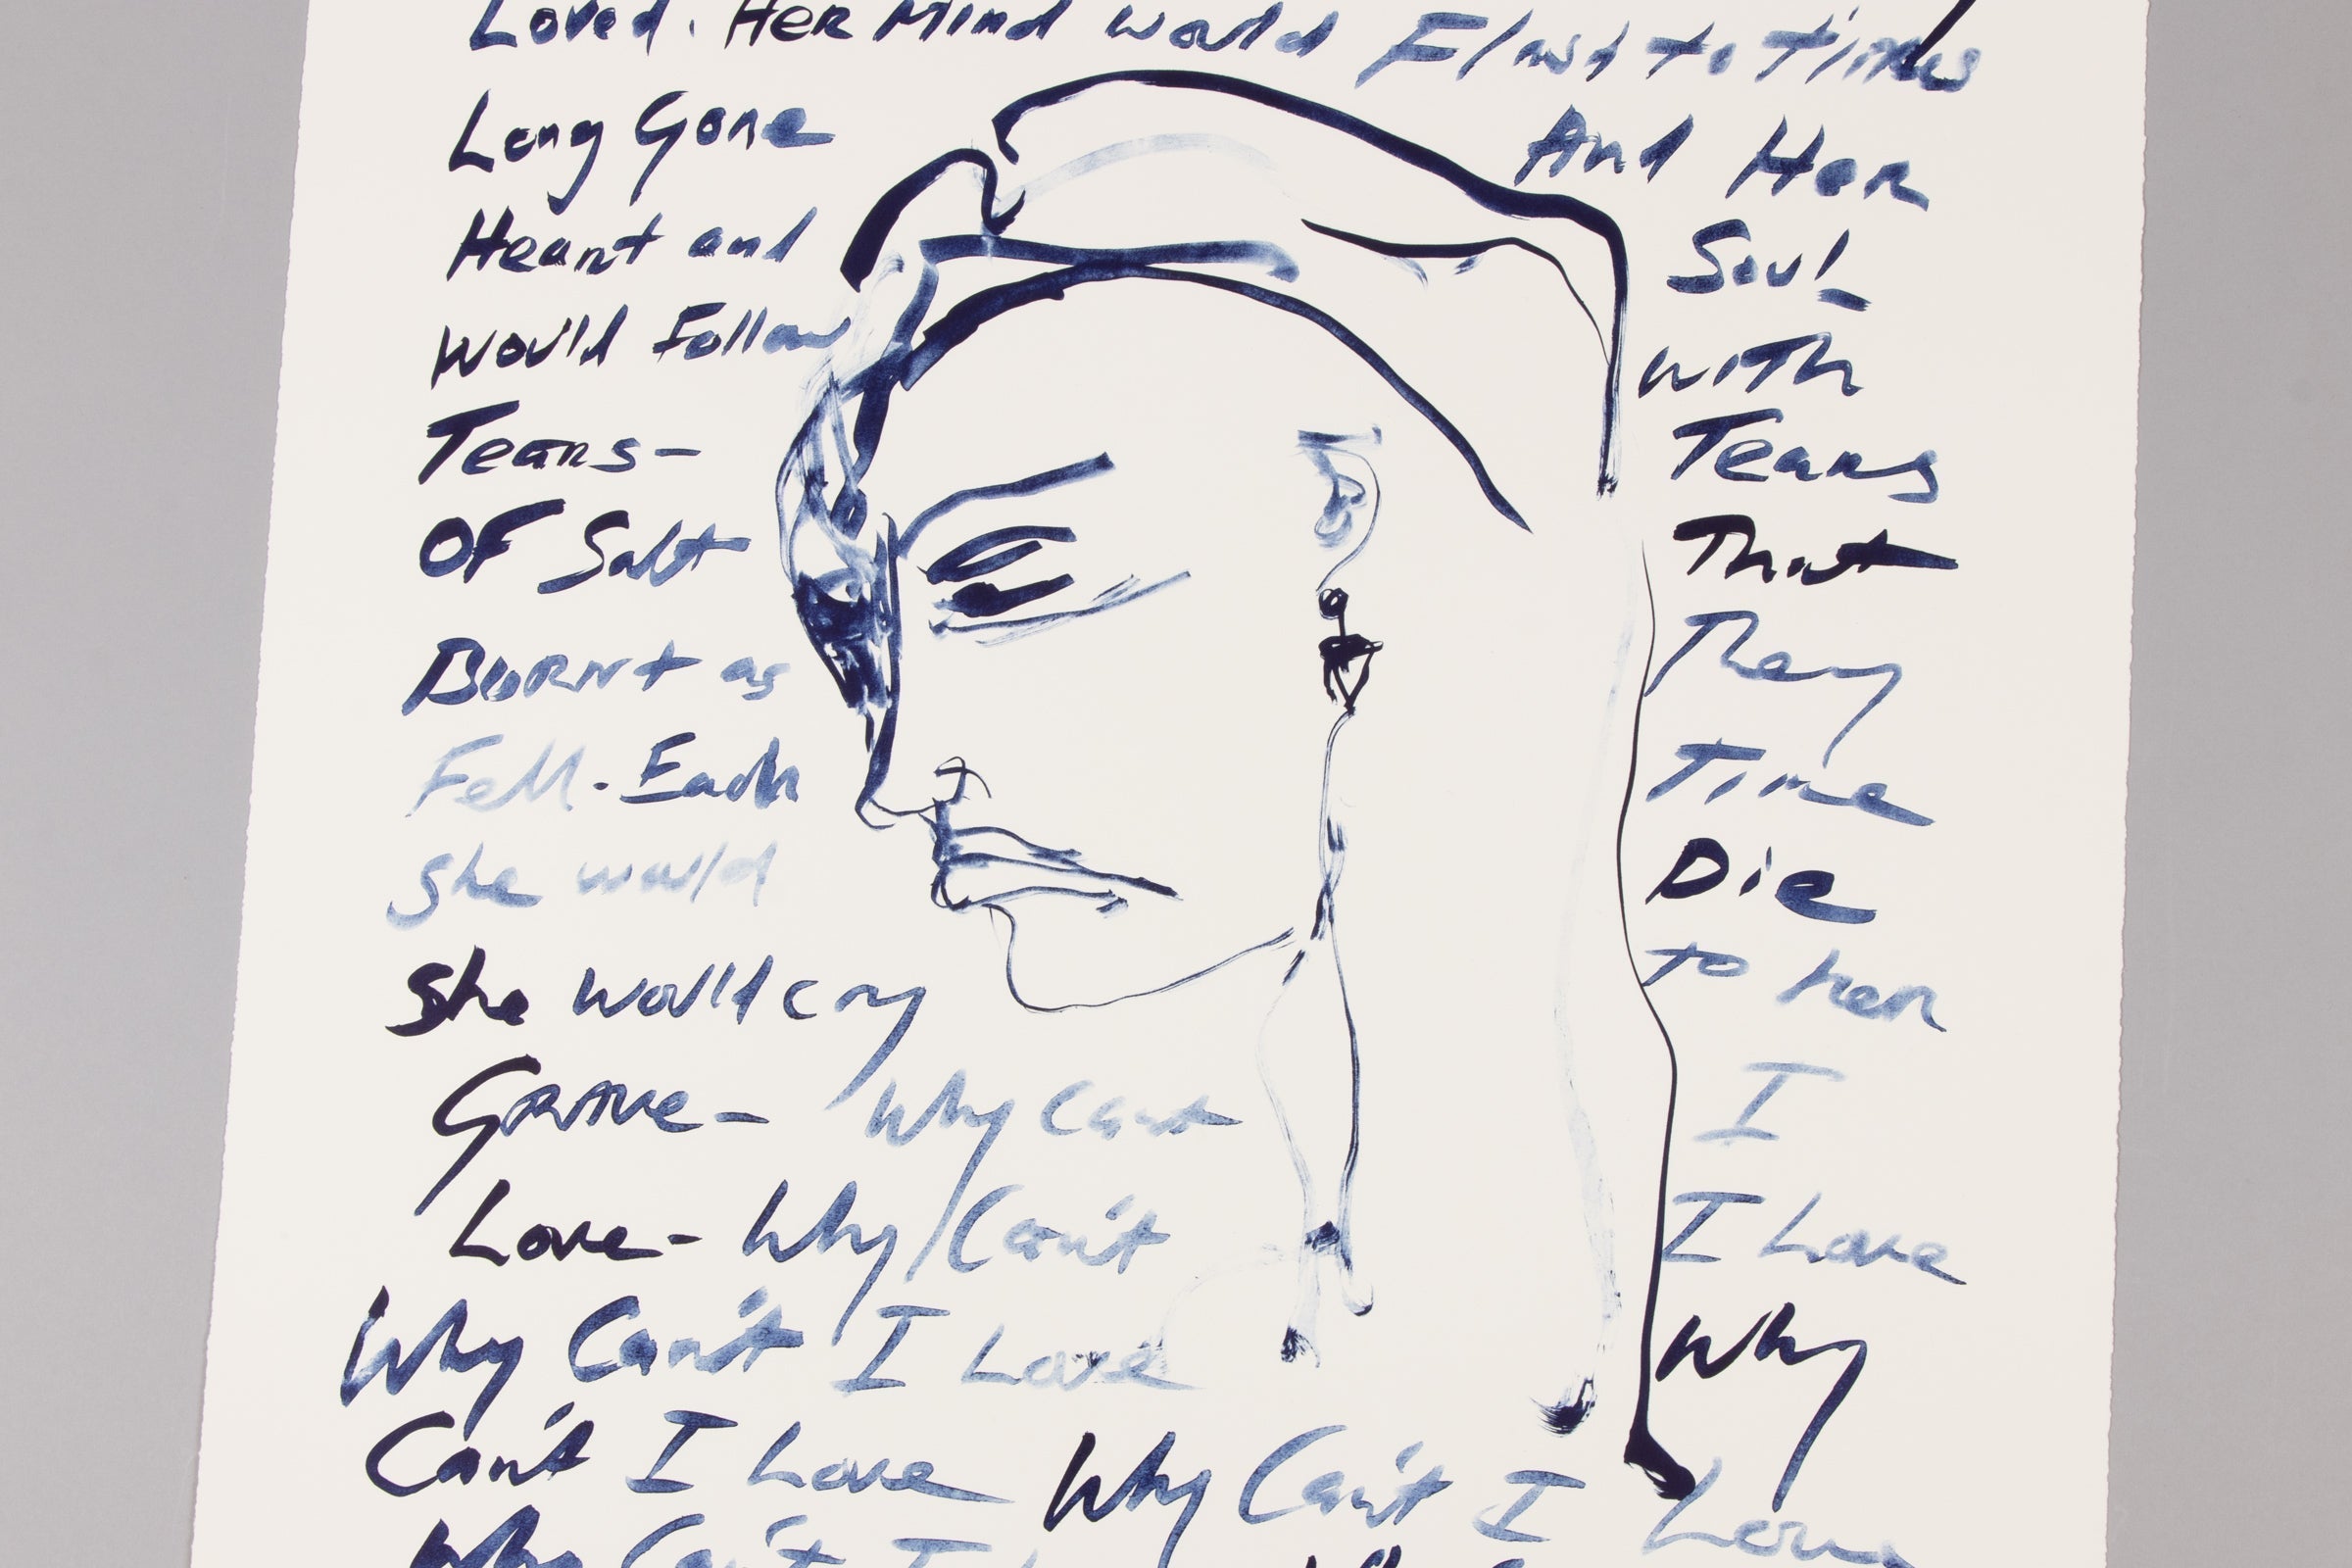 Loved. Her Mind would Flash to times
Long Gone And Her
Heart and Soul-
Would Follow with
Tears- Tears
OF Salt That
Burnt as They
Fell. Each Time
She would Die
She would cry to her
Grave- Why Can't I
Love- Why Can't I Love
Why Can't I Love Why
Can't I Love Why Can't I Love
Why Can't I